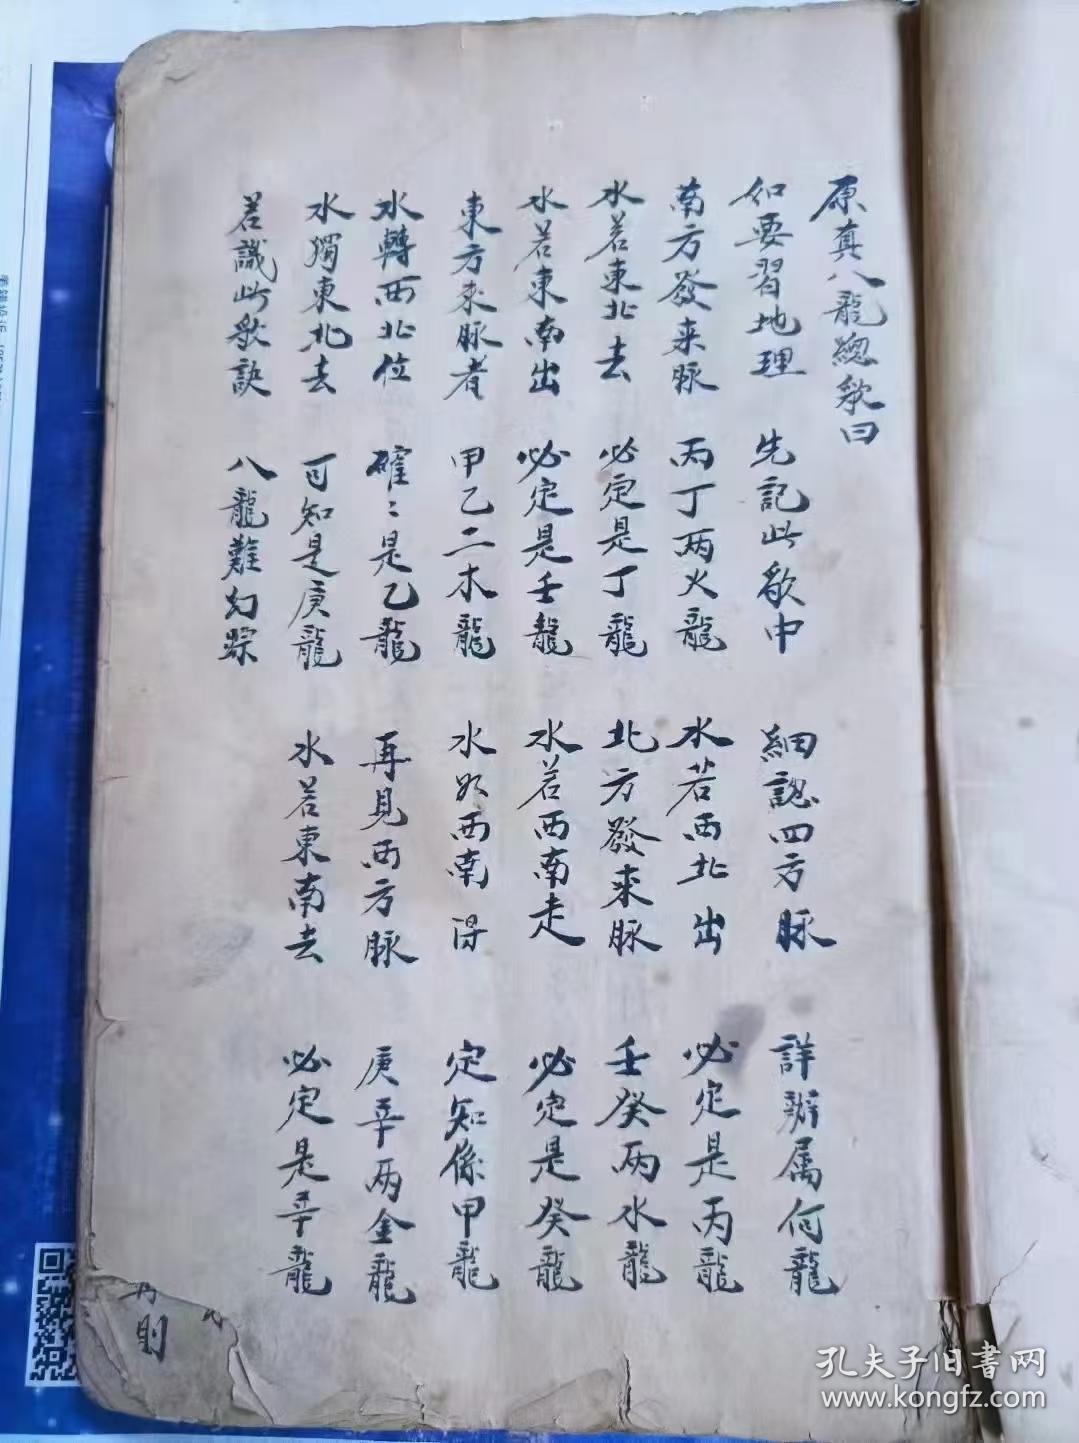 原真八龍總歌曰
如要習地理 先記此歌中 細認四方脉 詳辨属何龍
南方發来脉 丙丁两火龍 水若西北出 必定是丙龍
水若東北去 必定是丁龍 北方發來脉 壬癸两水龍
水若東南出 必定是壬龍 水若西南走 必定是癸龍
東方來脉者 甲乙二木龍 水從西南 定知係甲龍
水轉西北位 確〻是乙龍 再見西方脉 庚辛两金龍
水獨東北去 可知是庚龍 水若東南去 必定是辛龍
若識此歌訣 八龍難幻踪
則
孔夫子旧書网
www.kongfz.com